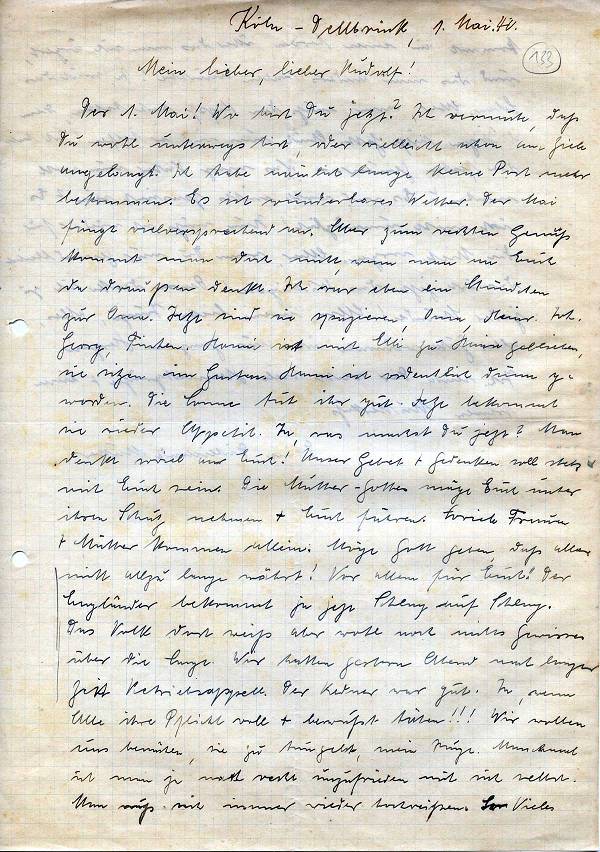 Köln-Dellbrück, 1. Mai. 42.
133
Mein lieber, lieber Rudolf!
Der 1. Mai! Wo bist Du jetzt? Ich vermute, daß
Du wohl unterwegs bist, oder vielleicht schon am Ziele
angelangt. Ich habe nämlich lange keine Post mehr
bekommen. Es ist wunderbares Wetter. Der Mai
fängt vielversprechend an. Aber zum rechten Genuß
kommt man doch nicht, wenn man an Euch
da draußen denkt. Ich war eben ein Stündchen
zur Oma. Jetzt sind sie spazieren, Oma,
Georg, Hanni ist mit Elli zu Hause geblieben,
sie sitzen im Garten. Hanni ist ordentlich dünn ge-
worden. Die Sonne tut ihr gut. Jetzt bekommt
sie wieder Appetit. Ja, was machst Du jetzt? Man
denkt soviel an Euch! Unser Gebet + Gedenken soll stets
mit Euch sein. Die Mutter-Gottes möge Euch unter
ihren Schutz nehmen + Euch führen. Soviele Frauen
+ Mütter kommen allein. Möge Gott geben, daß alles
nicht allzu lange währt! Vor allem für Euch! Der
Engländer bekommt ja jetzt Schlag auf Schlag.
Das Volk dort weiß aber wohl noch nichts Gewisses
über die Lage. Wir hatten gestern Abend nach langer
Zeit Betriebsappell. Der Redner war gut. Ja, wenn
Alle ihre Pflicht voll + bewußt täten!!! Wir wollen
uns bemühen, sie zu tun, mein Junge. Manchmal
ist man ja recht unzufrieden mit sich selbst.
Man muß sich immer wieder hochreißen. Vieles